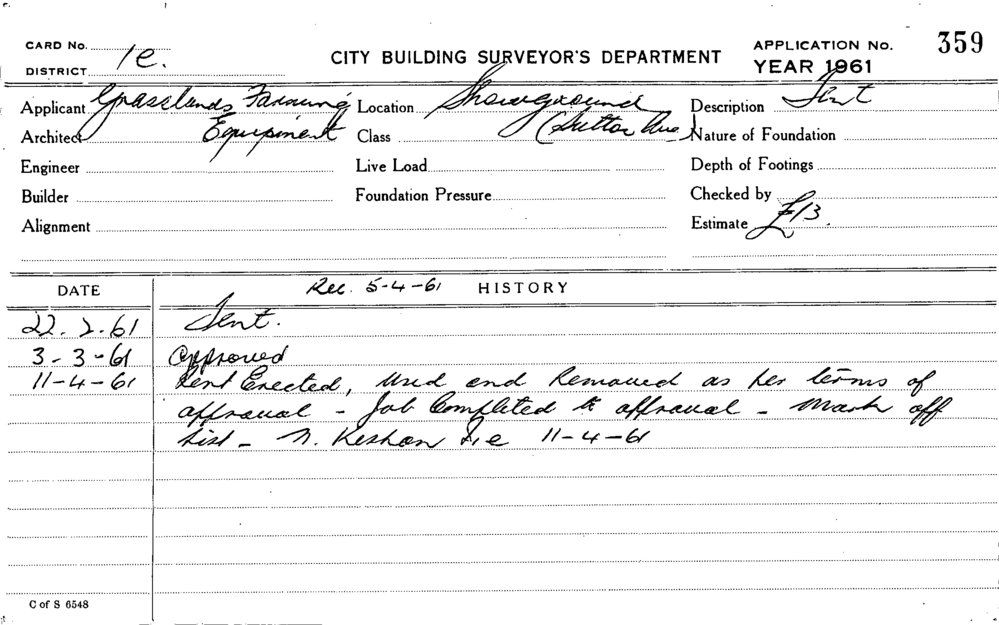 CARD No. 1e. CITY BUILDING SURVEYOR'S DEPARTMENT APPLICATION No. 359
DISTRICT YEAR 1961
Applicant Grasslands Farming Location Showground Description Tent
Architect Equipment Class (Sutton Ave) Nature of Foundation
Engineer Live Load Depth of Footings
Builder Foundation Pressure Checked by
Alignment Estimate £13.
DATE Rec. 5-4-61 HISTORY
22.2.61 Tent.
3-3-61 Approved
11-4-61 Tent Erected, Used and Removed as per terms of
approval - Job Completed to approval - Mark off
List - N. Keshan 1e 11-4-61
C of S 6548